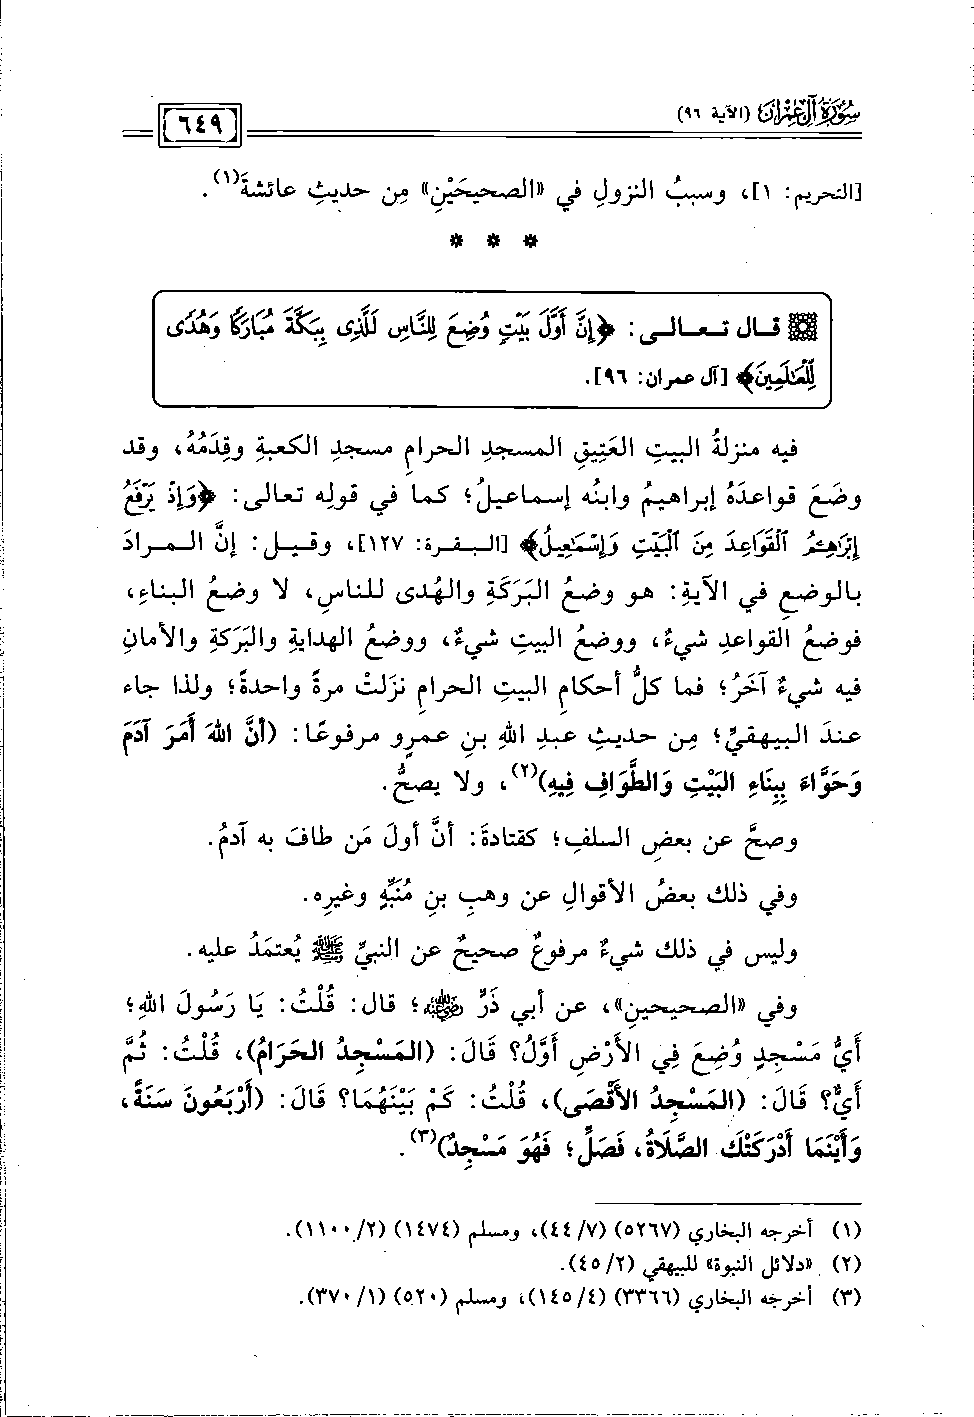 سُورَةُ آلِ عِمْرَانَ (الآية ٩٦)
٦٤٩
[التحريم: ١]، وسببُ النزولِ في «الصحيحَيْنِ» مِن حديثِ عائشةَ(١).
* * *
قال تعالى: ﴿إِنَّ أَوَّلَ بَيْتٍ وُضِعَ لِلنَّاسِ لَلَّذِى بِبَكَّةَ مُبَارَكًا وَهُدًى
لِّلْعَالَمِينَ﴾ [آل عمران: ٩٦].
فيه منزلةُ البيتِ العَتِيقِ المسجدِ الحرامِ مسجدِ الكعبةِ وقِدَمُهُ، وقد
وضَعَ قواعدَهُ إبراهيمُ وابنُه إسماعيلُ؛ كما في قولِه تعالى: ﴿وَإِذْ يَرْفَعُ
إِبْرَاهِـۧمُ ٱلْقَوَاعِدَ مِنَ ٱلْبَيْتِ وَإِسْمَاعِيلُ﴾ [البقرة: ١٢٧]، وقيل: إنَّ المرادَ
بالوضعِ في الآيةِ: هو وضعُ البَرَكَةِ والهُدى للناسِ، لا وضعُ البناءِ،
فوضعُ القواعدِ شيءٌ، ووضعُ البيتِ شيءٌ، ووضعُ الهدايةِ والبَرَكةِ والأمانِ
فيه شيءٌ آخَرُ؛ فما كلُّ أحكامِ البيتِ الحرامِ نزلتْ مرةً واحدةً؛ ولذا جاء
عندَ البيهقيِّ؛ مِن حديثِ عبدِ اللهِ بنِ عمرٍو مرفوعًا: (أَنَّ اللهَ أَمَرَ آدَمَ
وَحَوَّاءَ بِبِنَاءِ البَيْتِ وَالطَّوَافِ فِيهِ)(٢)، ولا يصحُّ.
وصحَّ عن بعضِ السلفِ؛ كقتادةَ: أنَّ أولَ مَن طافَ به آدمُ.
وفي ذلك بعضُ الأقوالِ عن وهبِ بنِ مُنَبِّهٍ وغيرِه.
وليس في ذلك شيءٌ مرفوعٌ صحيحٌ عن النبيِّ ﷺ يُعتمَدُ عليه.
وفي «الصحيحينِ»، عن أبي ذَرٍّ رضي الله عنه؛ قال: قُلْتُ: يَا رَسُولَ اللهِ؛
أَيُّ مَسْجِدٍ وُضِعَ فِي الأَرْضِ أَوَّلُ؟ قَالَ: (المَسْجِدُ الحَرَامُ)، قُلْتُ: ثُمَّ
أَيٌّ؟ قَالَ: (المَسْجِدُ الأَقْصَى)، قُلْتُ: كَمْ بَيْنَهُمَا؟ قَالَ: (أَرْبَعُونَ سَنَةً،
وَأَيْنَمَا أَدْرَكَتْكَ الصَّلَاةُ، فَصَلِّ؛ فَهُوَ مَسْجِدٌ)(٣).
(١) أخرجه البخاري (٥٢٦٧) (٤٤/٧)، ومسلم (١٤٧٤) (١١٠٠/٢).
(٢) «دلائل النبوة» للبيهقي (٤٥/٢).
(٣) أخرجه البخاري (٣٣٦٦) (١٤٥/٤)، ومسلم (٥٢٠) (٣٧٠/١).